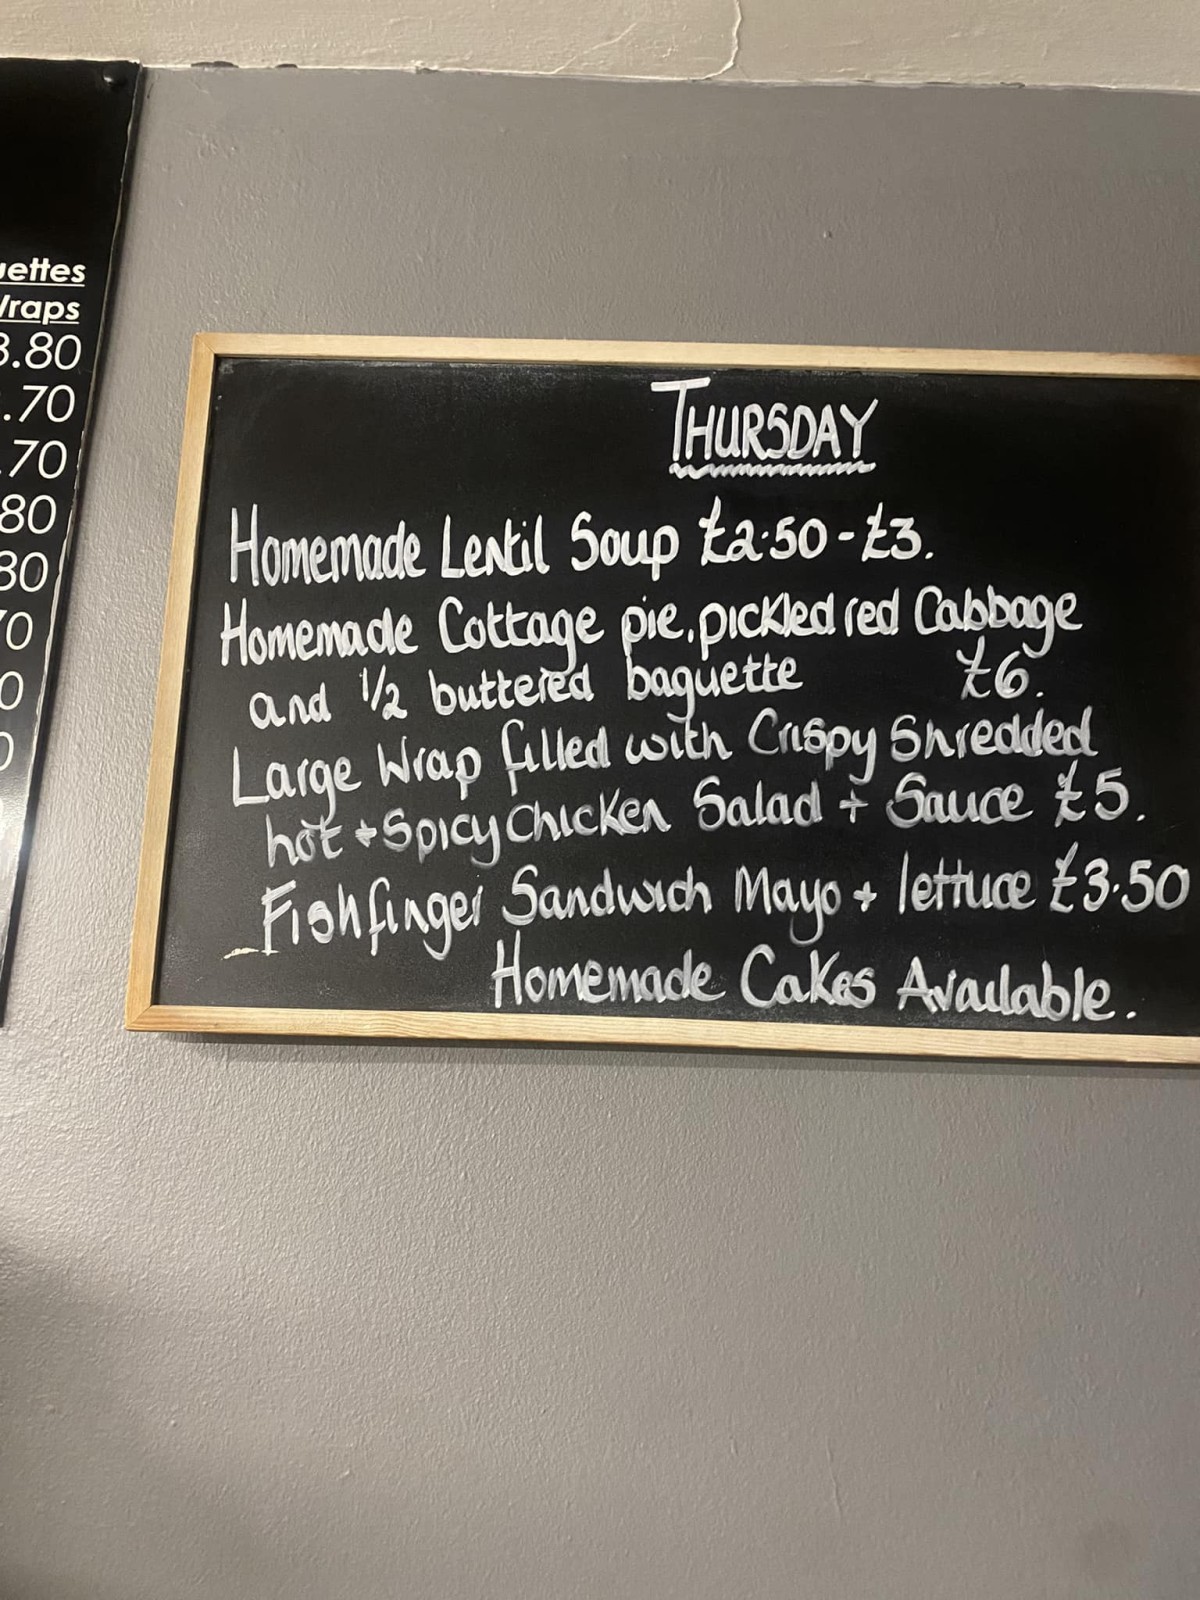 uettes
Wraps
3.80
.70
.70
80
80
70
0
0
THURSDAY
Homemade Lentil Soup £2.50 - £3.
Homemade Cottage pie, pickled red Cabbage
and 1/2 buttered baguette £6.
Large Wrap filled with Crispy Shredded
hot + Spicy Chicken Salad + Sauce £5.
Fishfinger Sandwich Mayo + lettuce £3.50
Homemade Cakes Available.